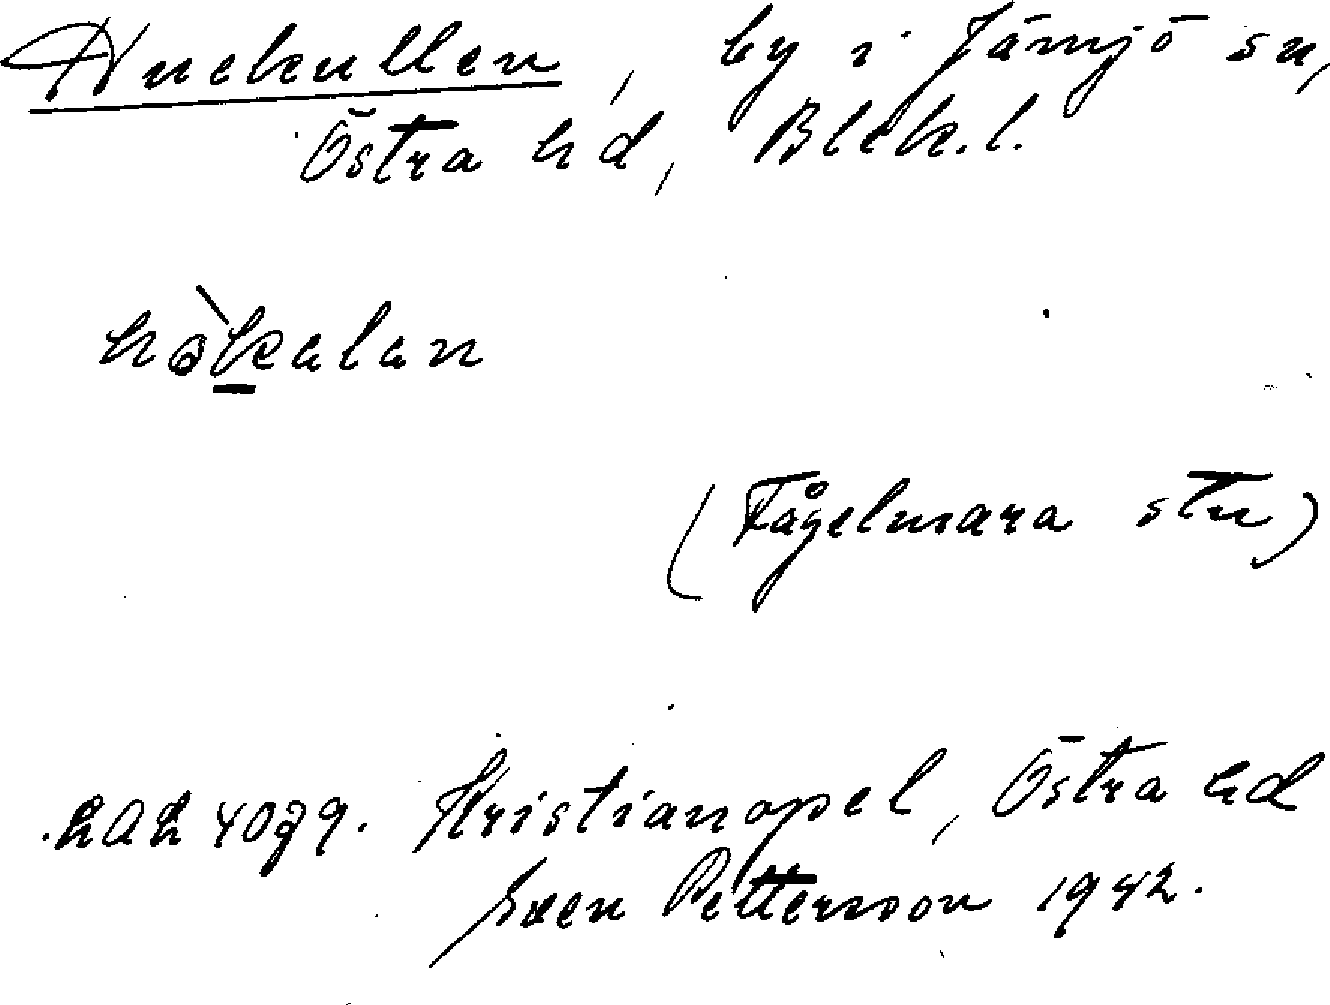 Huekullen, by i Jämjö sn,
Östra hd, Blek.l.
(Fågelmara stn)
LAL 4079. Kristianopel, Östra hd
Sven Pettersson 1942.